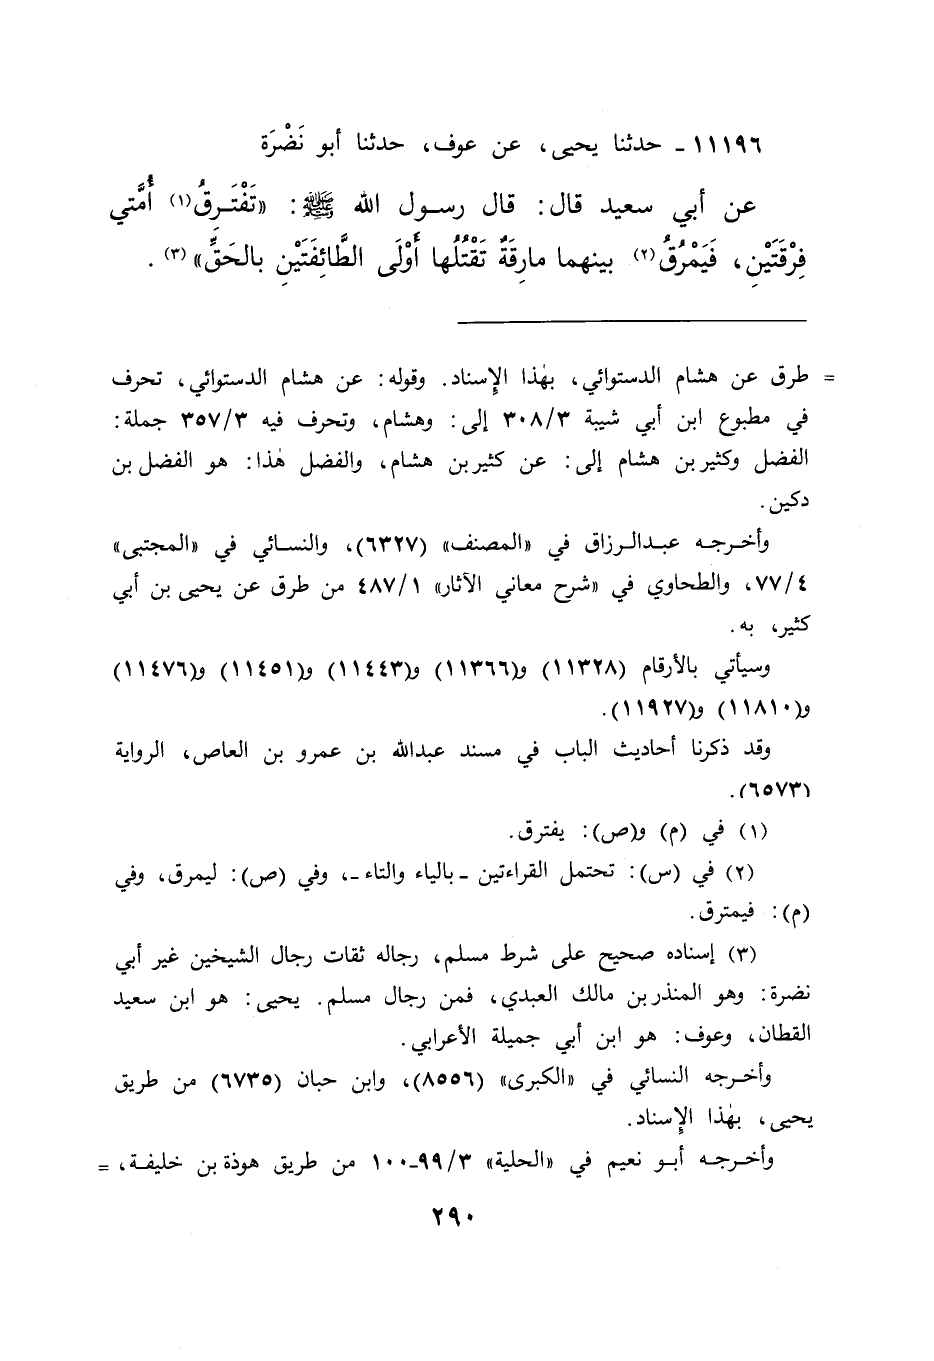 ١١١٩٦ ـ حدثنا يحيى، عن عوف، حدثنا أبو نَضْرَة
عن أبي سعيد قال: قال رسول الله ﷺ: «تَفْتَرِقُ(١) أُمَّتي
فِرْقَتَيْنِ، فَيَمْرُقُ(٢) بينهما مارِقَةٌ تَقْتُلُها أَوْلَى الطَّائِفَتَيْنِ بالحَقِّ»(٣).
= طرق عن هشام الدستوائي، بهٰذا الإسناد. وقوله: عن هشام الدستوائي، تحرف
في مطبوع ابن أبي شيبة ٣٠٨/٣ إلى: وهشام، وتحرف فيه ٣٥٧/٣ جملة:
الفضل وكثير بن هشام إلى: عن كثير بن هشام، والفضل هٰذا: هو الفضل بن
دكين.
وأخرجه عبدالرزاق في «المصنف» (٦٣٢٧)، والنسائي في «المجتبى»
٧٧/٤، والطحاوي في «شرح معاني الآثار» ٤٨٧/١ من طرق عن يحيى بن أبي
كثير، به.
وسيأتي بالأرقام (١١٣٢٨) و(١١٣٦٦) و(١١٤٤٣) و(١١٤٥١) و(١١٤٧٦)
و(١١٨١٠) و(١١٩٢٧).
وقد ذكرنا أحاديث الباب في مسند عبدالله بن عمرو بن العاص، الرواية
(٦٥٧٣).
(١) في (م) و(ص): يفترق.
(٢) في (س): تحتمل القراءتين ـ بالياء والتاء ـ، وفي (ص): ليمرق، وفي
(م): فيمترق.
(٣) إسناده صحيح على شرط مسلم، رجاله ثقات رجال الشيخين غير أبي
نضرة: وهو المنذر بن مالك العبدي، فمن رجال مسلم. يحيى: هو ابن سعيد
القطان، وعوف: هو ابن أبي جميلة الأعرابي.
وأخرجه النسائي في «الكبرى» (٨٥٥٦)، وابن حبان (٦٧٣٥) من طريق
يحيى، بهٰذا الإسناد.
وأخرجه أبو نعيم في «الحلية» ٩٩/٣ـ١٠٠ من طريق هوذة بن خليفة، =
٢٩٠